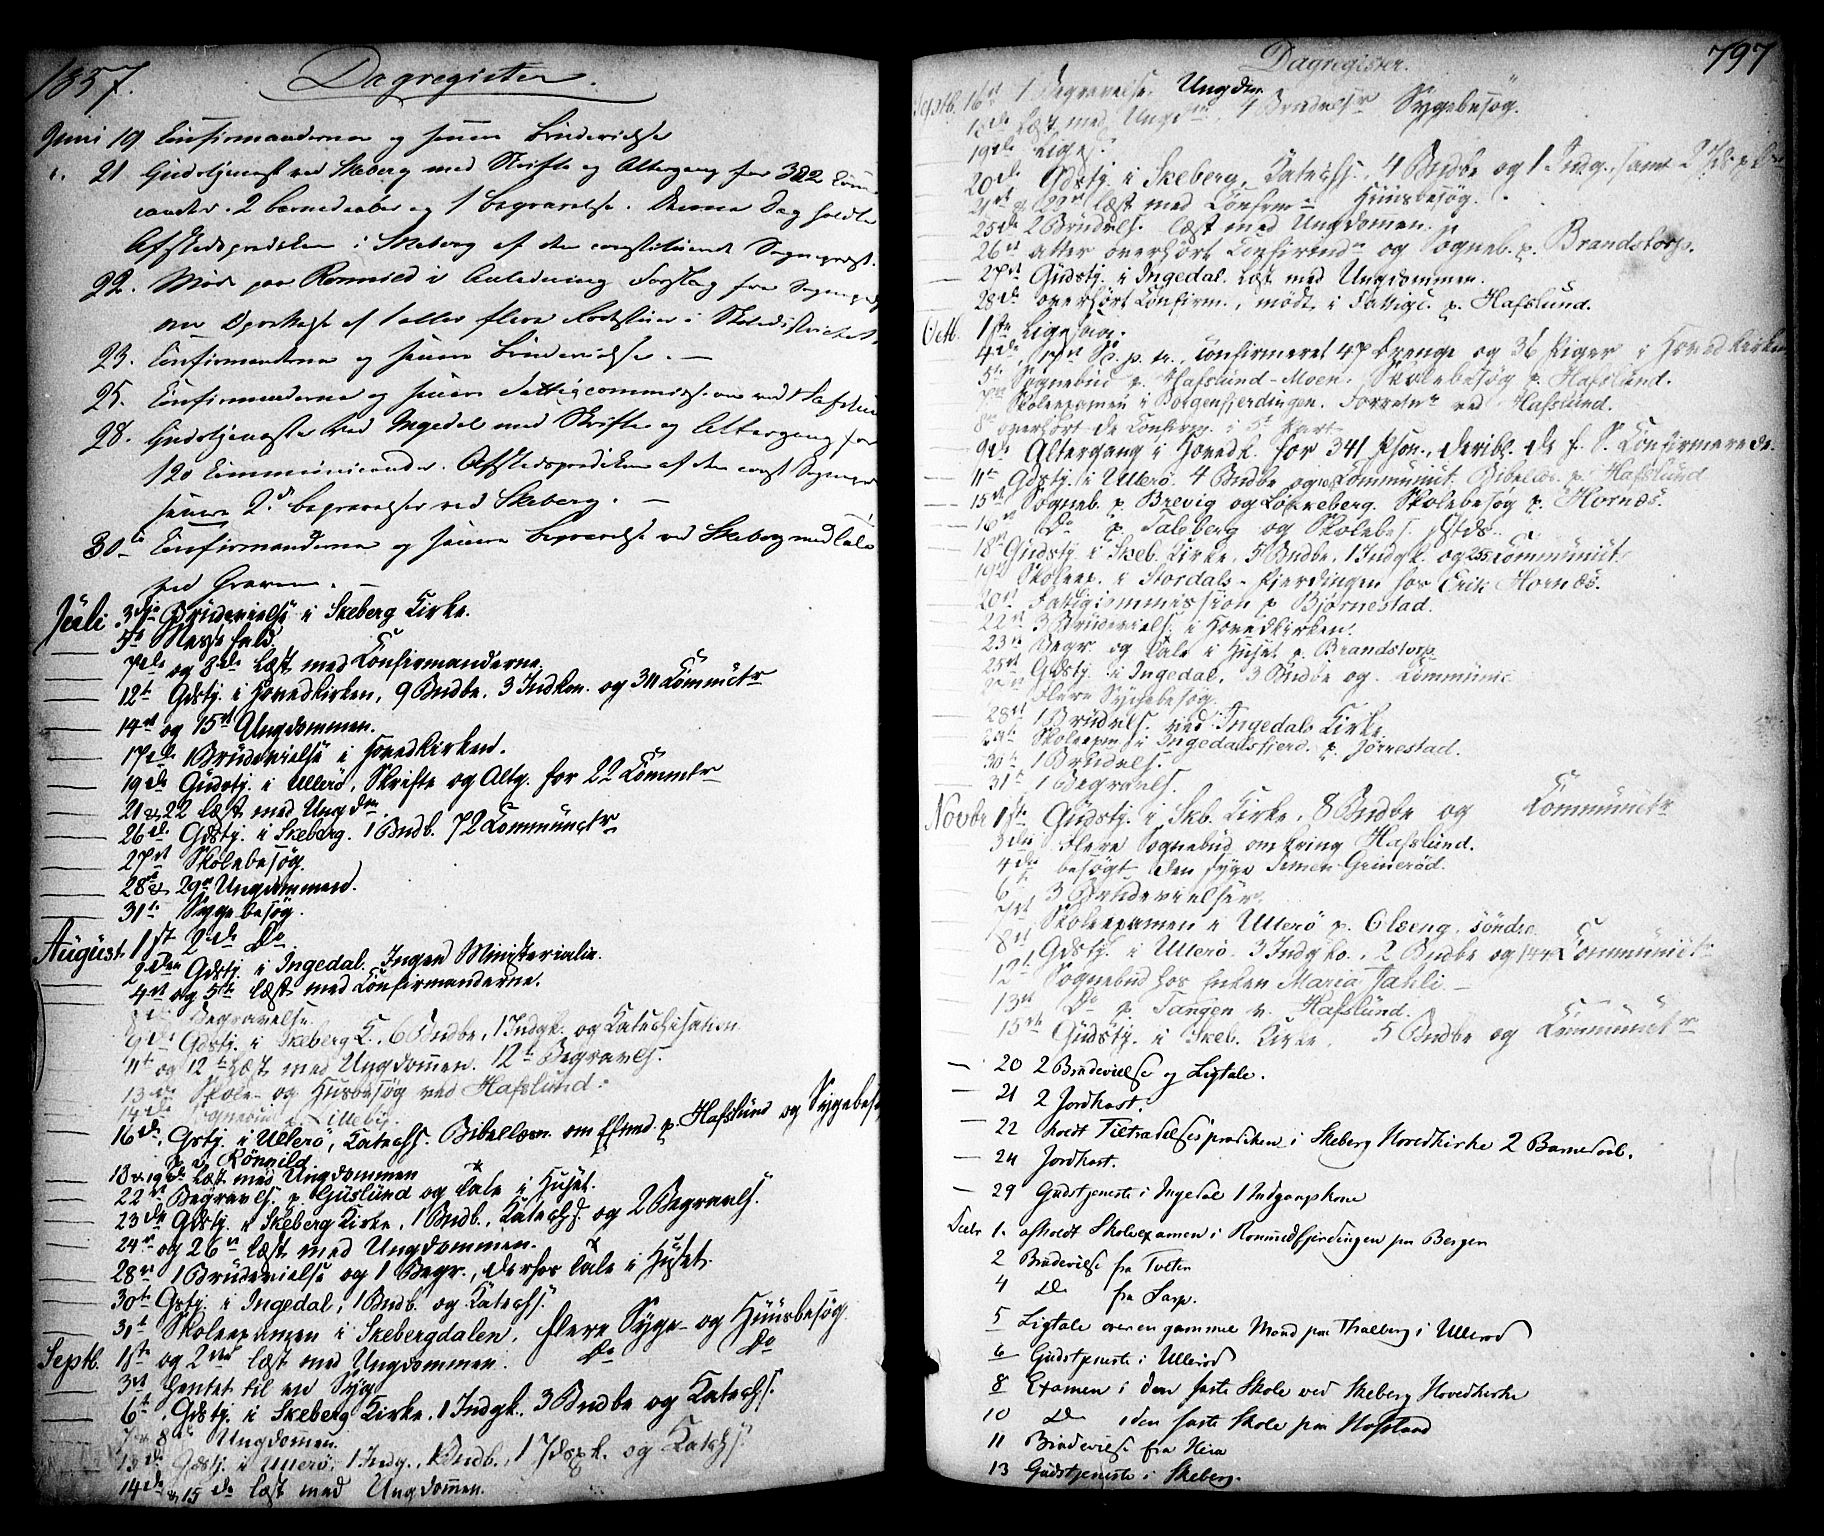 1857.
Dagregister.
Juni 19 Confirmanderne og senere Brudevielse
21 Gudstjeneste ved Skeberg med Skrifte og Altergang for 322 Commu-
canter. 2 barnedaaber og 1 begravelse. Denne Dag holdte
Afskedsprædiken i Skeberg af den constituerede Sognepræst.
22. Møde paa Romnild i Anledning Forslag fra
Opsættelse af 1 eller flere i Skoledistrictet
23. Confirmanderne og senere Brudevielse. —
25. Confirmanderne og senere Fattigcommission ved Hafslund
28. Gudstjeneste ved Ingedal med Skrifte og Altergang for
120 Communicander. Afskedsprædiken af den const Sognepr
senere 2de begravelser ved Skeberg. —
30te Confirmanderne og senere Begravelse ved Skeberg med Tale
ved Graven. —
Juli 3die Brudevielse i Skeberg Kirke.
5te Messefald.
7de og 8de læst med Confirmanderne.
12te Gdstj. i Hovedkirken, 9 Bndbe. 3 Indkon. og 311 Kommctr
14de og 15de Ungdommen.
17de 1 Brudevielse i Hovedkirken.
19de Gudstj. i Ullerö, Skrifte og Altg. for 22 Kommctr
21 & 22 læst med Ungdm
26de Gdstj. i Skeberg. 1 Bndb. 72 Kommunctr
27de Skolebesøg.
28de & 29de Ungdommen.
31te Sygebesøg.
August 1ste 2de Do
2den Gdstj. i Ingedal. Ingen Ministerialia.
4de og 5te læst med Confirmanderne.
8de Begravelse.
9de Gdstj. i Skeberg K., 6 Bndbe, 1 Indgk. og Katechisation
11te og 12te læst med Ungdommen. 12te Begravels.
13de Skole- og Husbesøg ved Hafslund.
14de Sognebud p. Lilleby.
16de Gstj. i Ullerö, Katechs. Bibellæsn. om Efmd. p. Hafslund og Sygebesøg
p. Rönnild
18 & 19de læst med Ungdommen
22de Begravels. p. Guslund og Tale i Huset.
23de Gdstj. i Skeberg Kirke, 1 Bndb., Katechs. og 2 Begravels.
24de og 26de læst med Ungdommen.
28de 1 Brudevielse og 1 Begr., derhos Tale i Huset.
30te Gstj. i Ingedal, 1 Bndb. og Katechs.
31te Skoleexamen i Skebergdalen, flere Syge- og Huusbesøg
Septb. 1ste og 2den læst med Ungdommen. Do Do
3de Hentet til en Syg
6te Gdstj. i Skeberg Kirke, 1 Indgk., 3 Bndbe og Katechs.
7 & 8de Ungdommen.
13de Gdstj. i Ullerö, 1 Indg., 1 Bndb., og Katechs.
14de & 15de læst med Ungdommen.
Dagregister.
797
Septb. 16de 1 Begravelse. Ungdm
18de læst med Ungdm, 4 Brudvlsr Sygebesøg.
19de Ligesaa
20de Gdstj. i Skeberg, Katechs. 4 Bndbe og 1 Indg., samt 2
21de & 22de læst med Confrm Huusbesøg.
25de 2 Brudvls. læst med Ungdommen.
26de atter overhørt Confirmd og Sogneb. p. Brandstorp.
27de Gudstj. i Ingedal. læst med Ungdommen.
28de overhørt Confirm., mødt i Fattigc. p. Hafslund.
Octb. 1ste Ligesaa.
4de, 17de S. p. Tr., confirmeret 47 Drenge og 36 Piger i Hovedkirken
5te Sognebud p. Hafslund-Moen. Skolebesøg p. Hafslund.
7de Skoleexamen i Borgenfjerdingen. Forretn ved Hafslund.
8de overhørt de Confirm. i
9de Altergang i Hovedk. for 341 Pson., deribl. de f. S. Confirmerede.
11te Gdstj. i Ullerö 4 Bndbe og Communict. Bibelles. p. Hafslund
15de Sogneb. p. Brevig og Lökkeberg. Skolebesøg p. Hornæs.
16de Do p. Saleberg og Skolebes.
18de Gudstj. i Skeb. Kirke, 5 Bndbe, 1 Indgk. og 255 Communict.
19de Skoleex. i Stordals-Fjerdingen hos Erik Hornæs.
20de Fattigcommission p. Bjørnestad.
22de 3 Brudeviels. i Hovedkirken.
23de Begr. og Tale i Huset p. Brandstorp
25de Gdstj. i Ingedal, 3 Bndbe og Kommunic
flere Sygebesøg.
28de 1 Brudvls. ved Ingedals Kirke.
Skoleexmn i Ingedalsfjerd. p. Jörrestad.
30te 1 Brudvls.
31te 1 Begravels.
Novbr 1ste Gudstj. i Skb. Kirke, 8 Bndbe og Kommunictr
3die Flere Sognebud omkring Hafslund.
4de besøgt den syge Simen Grimerød.
6te 3 Brudevielser.
7de Skoleexamen i Ullerö p. Olseng, söndre
8de Gdstj. i Ullerö. 3 Indgko., 2 Bndbe og 144 Communict.
12te Sognebud hos Enken Maria Dahli —
13de Do p. Tangen v. Hafslund.
15de Gudstj. i Skeb. Kirke, 5 Bndbe og Kommunictr
— 20 2 Brudevielse og Ligtale.
21 2 Jordkast.
— 22 holdt Tiltrædelsesprædiken i Skeberg Hovedkirke 2 Barnedaab.
— 24 Jordkast.
— 29 Gudstjeneste i Ingedal 1 Indgangskone
Decbr 1. afholdt Skoleexamen i Rommedfjerdingen paa Bergen
2 Brudevielse fra Tveten
4 Do fra Sarp.
5 Ligtale over en gammel Mand paa Thalberg i Ullerød
6 Gudstjeneste i Ullerød
8 Examen i den faste Skole ved Skeberg Hovedkirke
10 Do i den faste Skole paa Hafslund
11 Brudevielse fra Hem
13 Gudstjeneste i Skeberg.